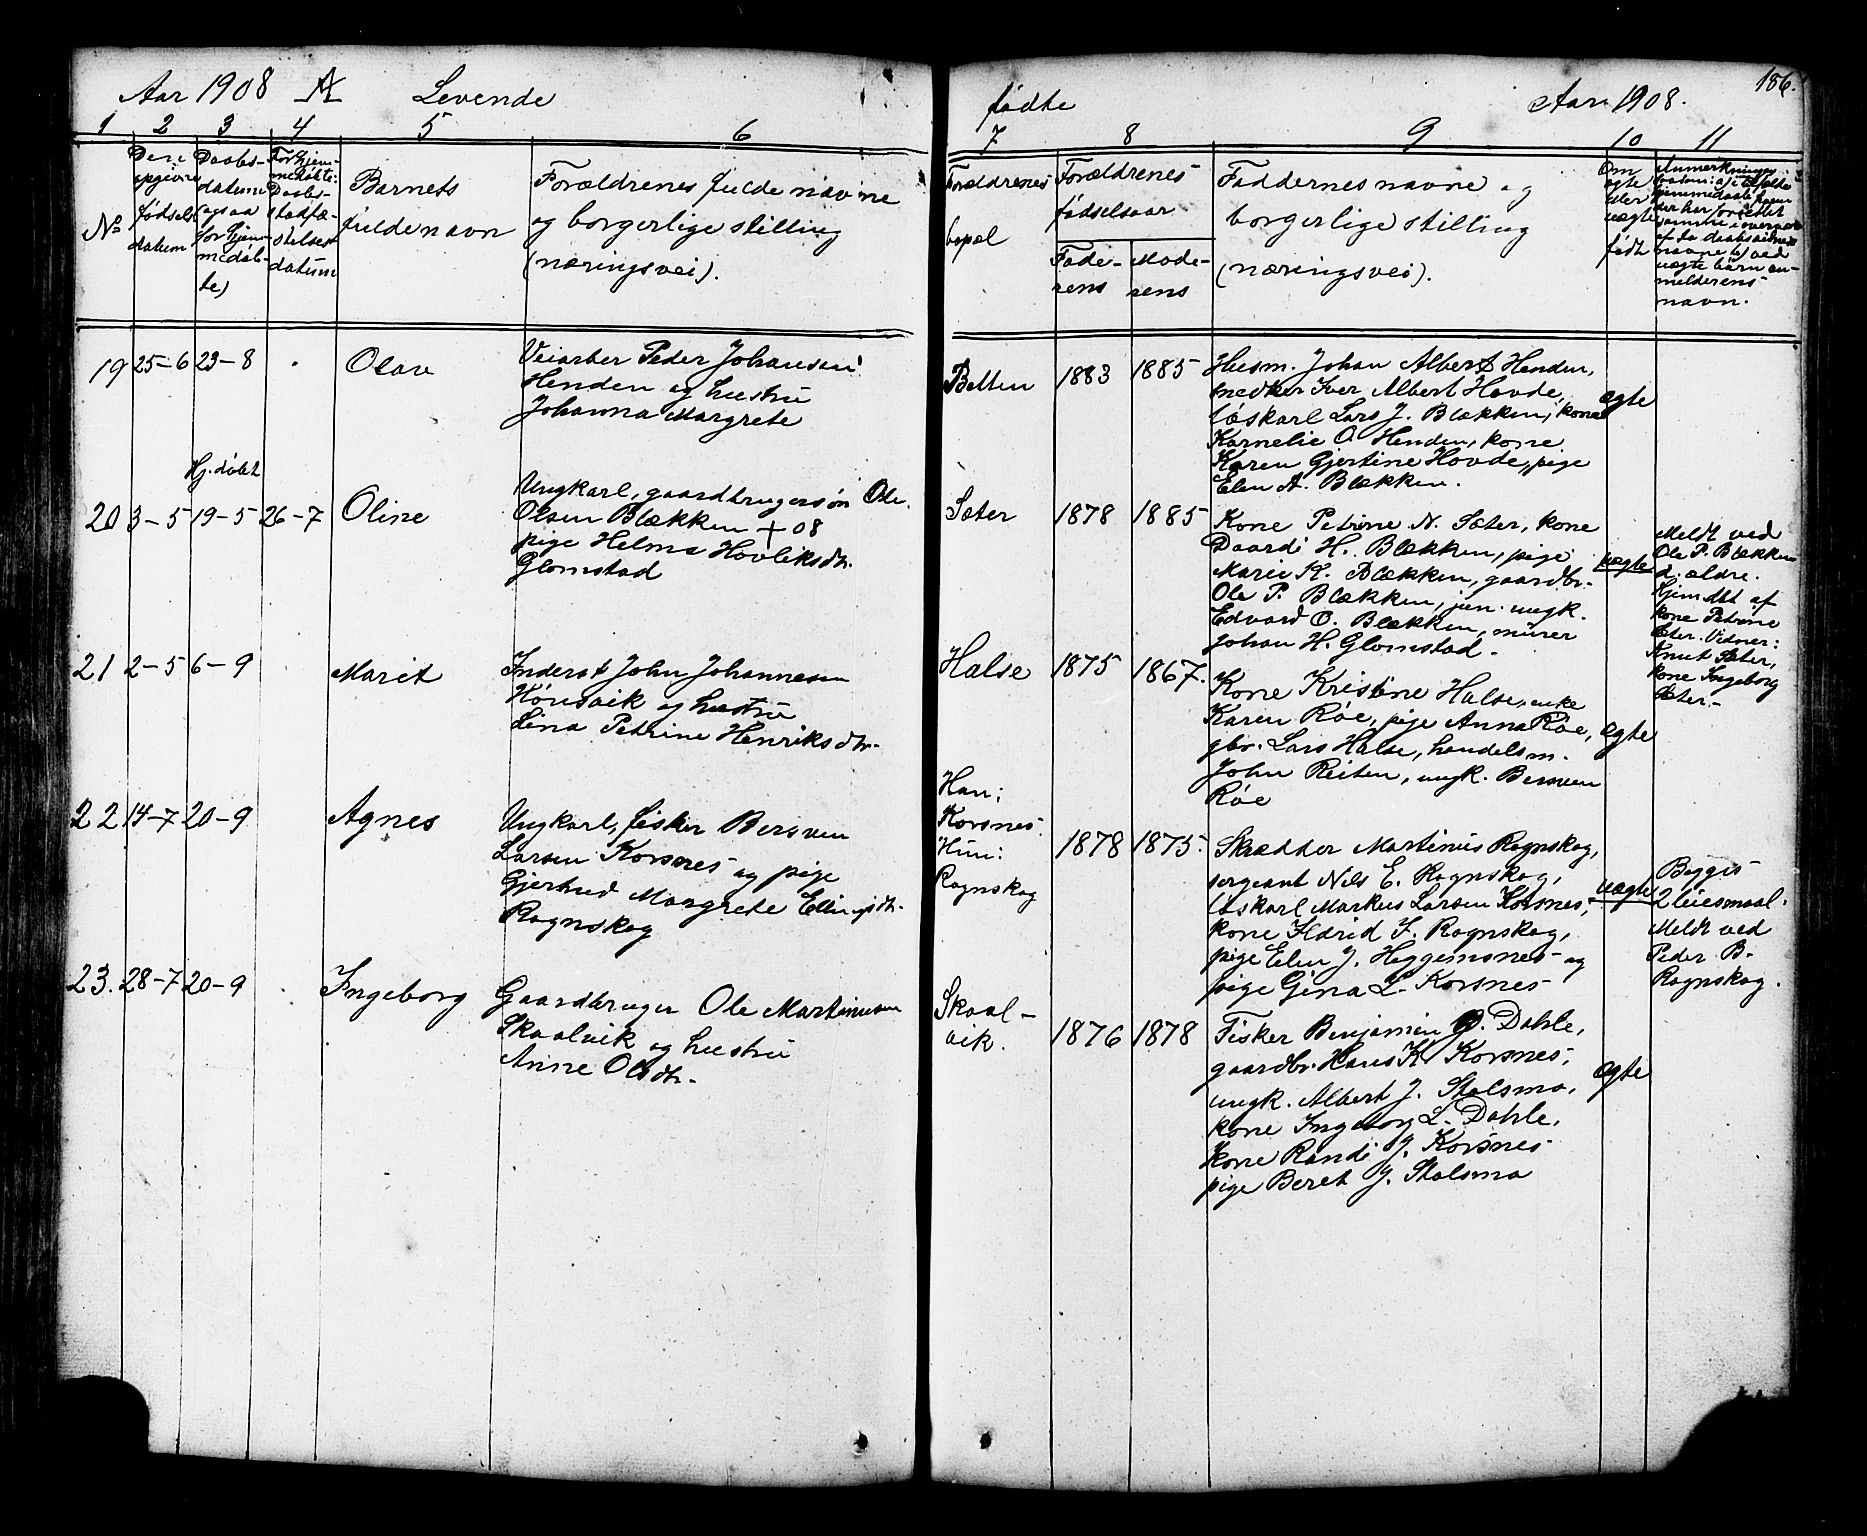 Aar 1908 A Levende
1 2 3 4 5 6
No
Den
opgivne
fødsels
datum
Daabs-
datum
(ogsaa
for hjem-
medøb-
te)
For hjem-
medøbte:
Daabs-
stadfæ-
stelses
datum
Barnets
fulde navn
Forældrenes fulde navne
og borgerlige stilling
(næringsvei).
19 25-6 23-8 Olav
Veiarber Peder Johansen
Henden og hustru
Johanna Margrete
Hj. døbt
20 3-5 19-5 26-7 Oline
Ungkarl, gaardbrugersøn Ole
Olsen Blækken + 08
pige Helma Hovliksdtr.
Glomstad
21 2-5 6-9 Marit
Inderst John Johannesen
Hønsvik og hustru
Lina Petrine Henriksdtr.
22 14-7 20-9 Agnes
Ungkarl, fisker Bersven
Larsen Korsnes og pige
Gjertrud Margrete Ellingsdtr.
Rognskog
23. 28-7 20-9 Ingeborg
Gaardbruger Ole Martinusen
Skaalvik og hustru
Anne Olsdtr.
fødte Aar 1908. 186.
7 8 9 10 11
Forældrenes
bopæl
Forældrenes
fødselsaar
Fade-
rens
Mode-
rens
Faddernes navne og
borgerlige stilling
(næringsvei).
Om
ægte
eller
uægte
født
Anmerkninger
melderens
navn.
Botten 1883 1885
Husm. Johan Albert Henden,
medker Iver Albert Hovde,
løskarl Lars J. Blækken, kone
Kornelie O. Henden, kone
Karen Gjertine Hovde, pige
Elen A. Blækken.
ægte
Sæter 1878 1885
Kone Petrine N. Sæter, kone
Daardi H. Blækken, pige
Marie K. Blækken, gaardbr.
Ole P. Blækken, jun. ungk.
Edvard O. Blækken, murer
Johan H. Glomstad.
uægte
Meldt ved
Ole P. Blækken
d. ældre.
Hjemdbt af
kone Petrine
Sæter. Vidner:
Knut Sæter,
kone Ingeborg
Sæter.
Halse 1875 1867.
Kone Kristine Halse, enke
Karen Røe, pige Anna Røe,
gbr. Lars Halse, handelsm.
John Reiten, ungk. Bersven
Røe
ægte
Han:
Korsnes.
Hun:
Rognskog
1878 1875.
Skrædder Martinus Rognskog,
sergeant Nils E. Rognskog,
løskarl Markus Larsen Korsnes,
kone Hdrid I. Rognskog,
pige Elen J. Higgemsnes og
pige Gina L. Korsnes
uægte
Begges
2 leiesmaal.
Meldt ved
Peder B.
Rognskog.
Skaal-
vik.
1876 1878
Fisker Benjamin P. Dahle,
gaardbr. Hans K. Korsnes,
ungk. Albert J. Stølsmo,
kone Ingeborg L. Dahle,
kone Randi J. Korsnes
pige Beret J. Stolsmo
ægte